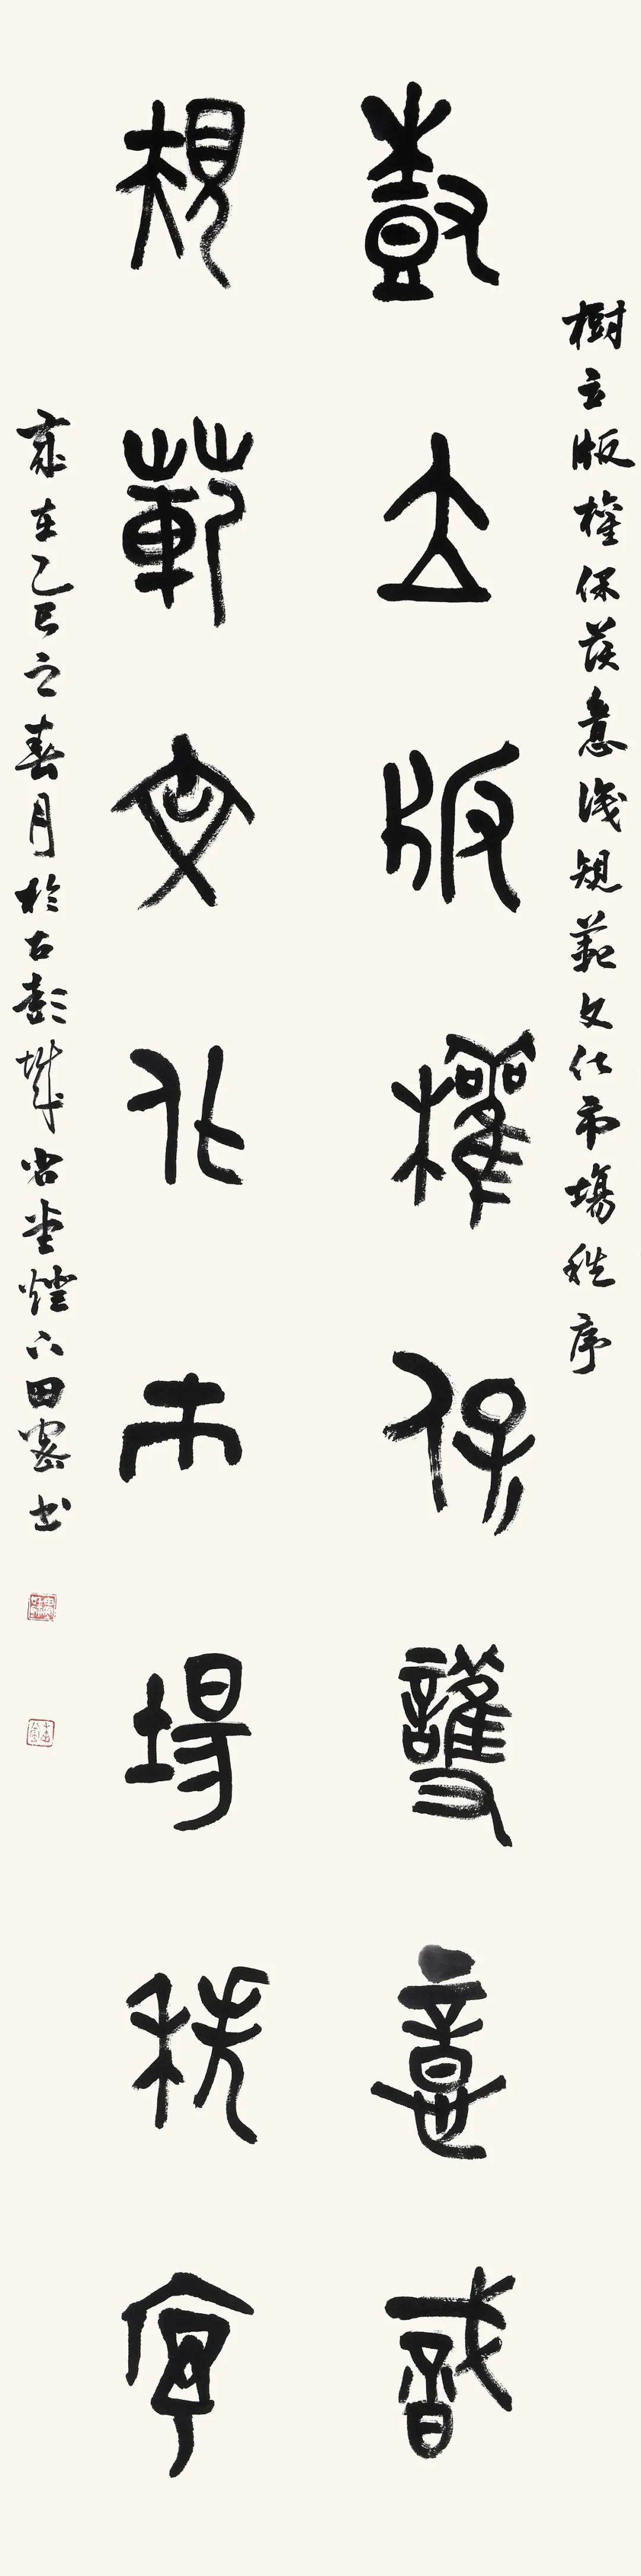 樹立版權保護意識規範文化市場秩序
樹立版權保護意識
規範文化市場秩序
歲在乙巳之春月於古彭城尚堂燈下田密書